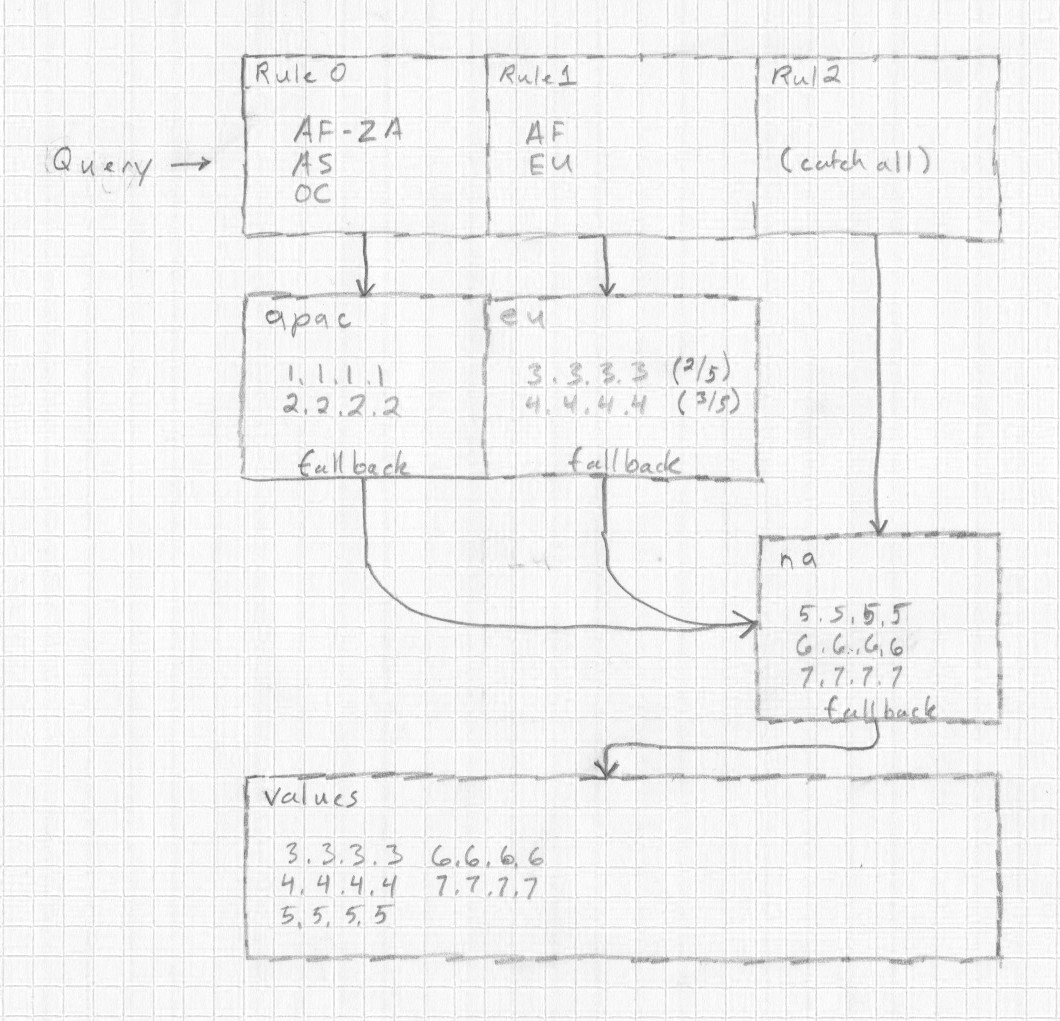 Rule 0
AF-ZA
AS
OC
Rule 1
AF
EU
Rul2
(catch all)
Query →
apac
1.1.1.1
2.2.2.2
fallback
eu
3.3.3.3 (2/5)
4.4.4.4 (3/5)
fallback
na
5.5.5.5
6.6.6.6
7.7.7.7
fallback
values
3.3.3.3 6.6.6.6
4.4.4.4 7.7.7.7
5.5.5.5